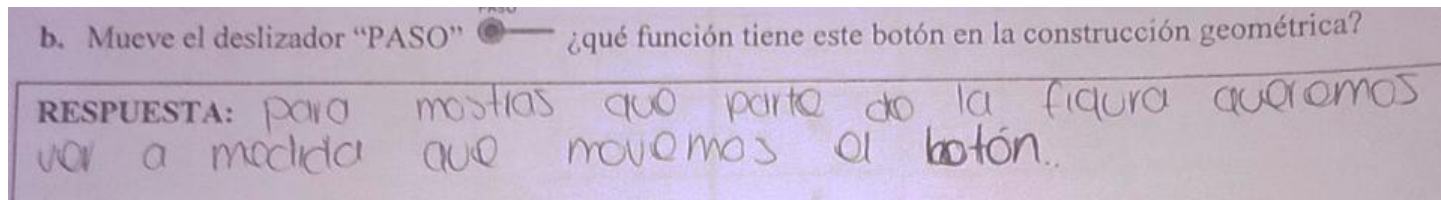 b. Mueve el deslizador “PASO” ¿qué función tiene este botón en la construcción geométrica?
RESPUESTA: para mostras que parte de la figura queremos
ver a medida que movemos el botón..